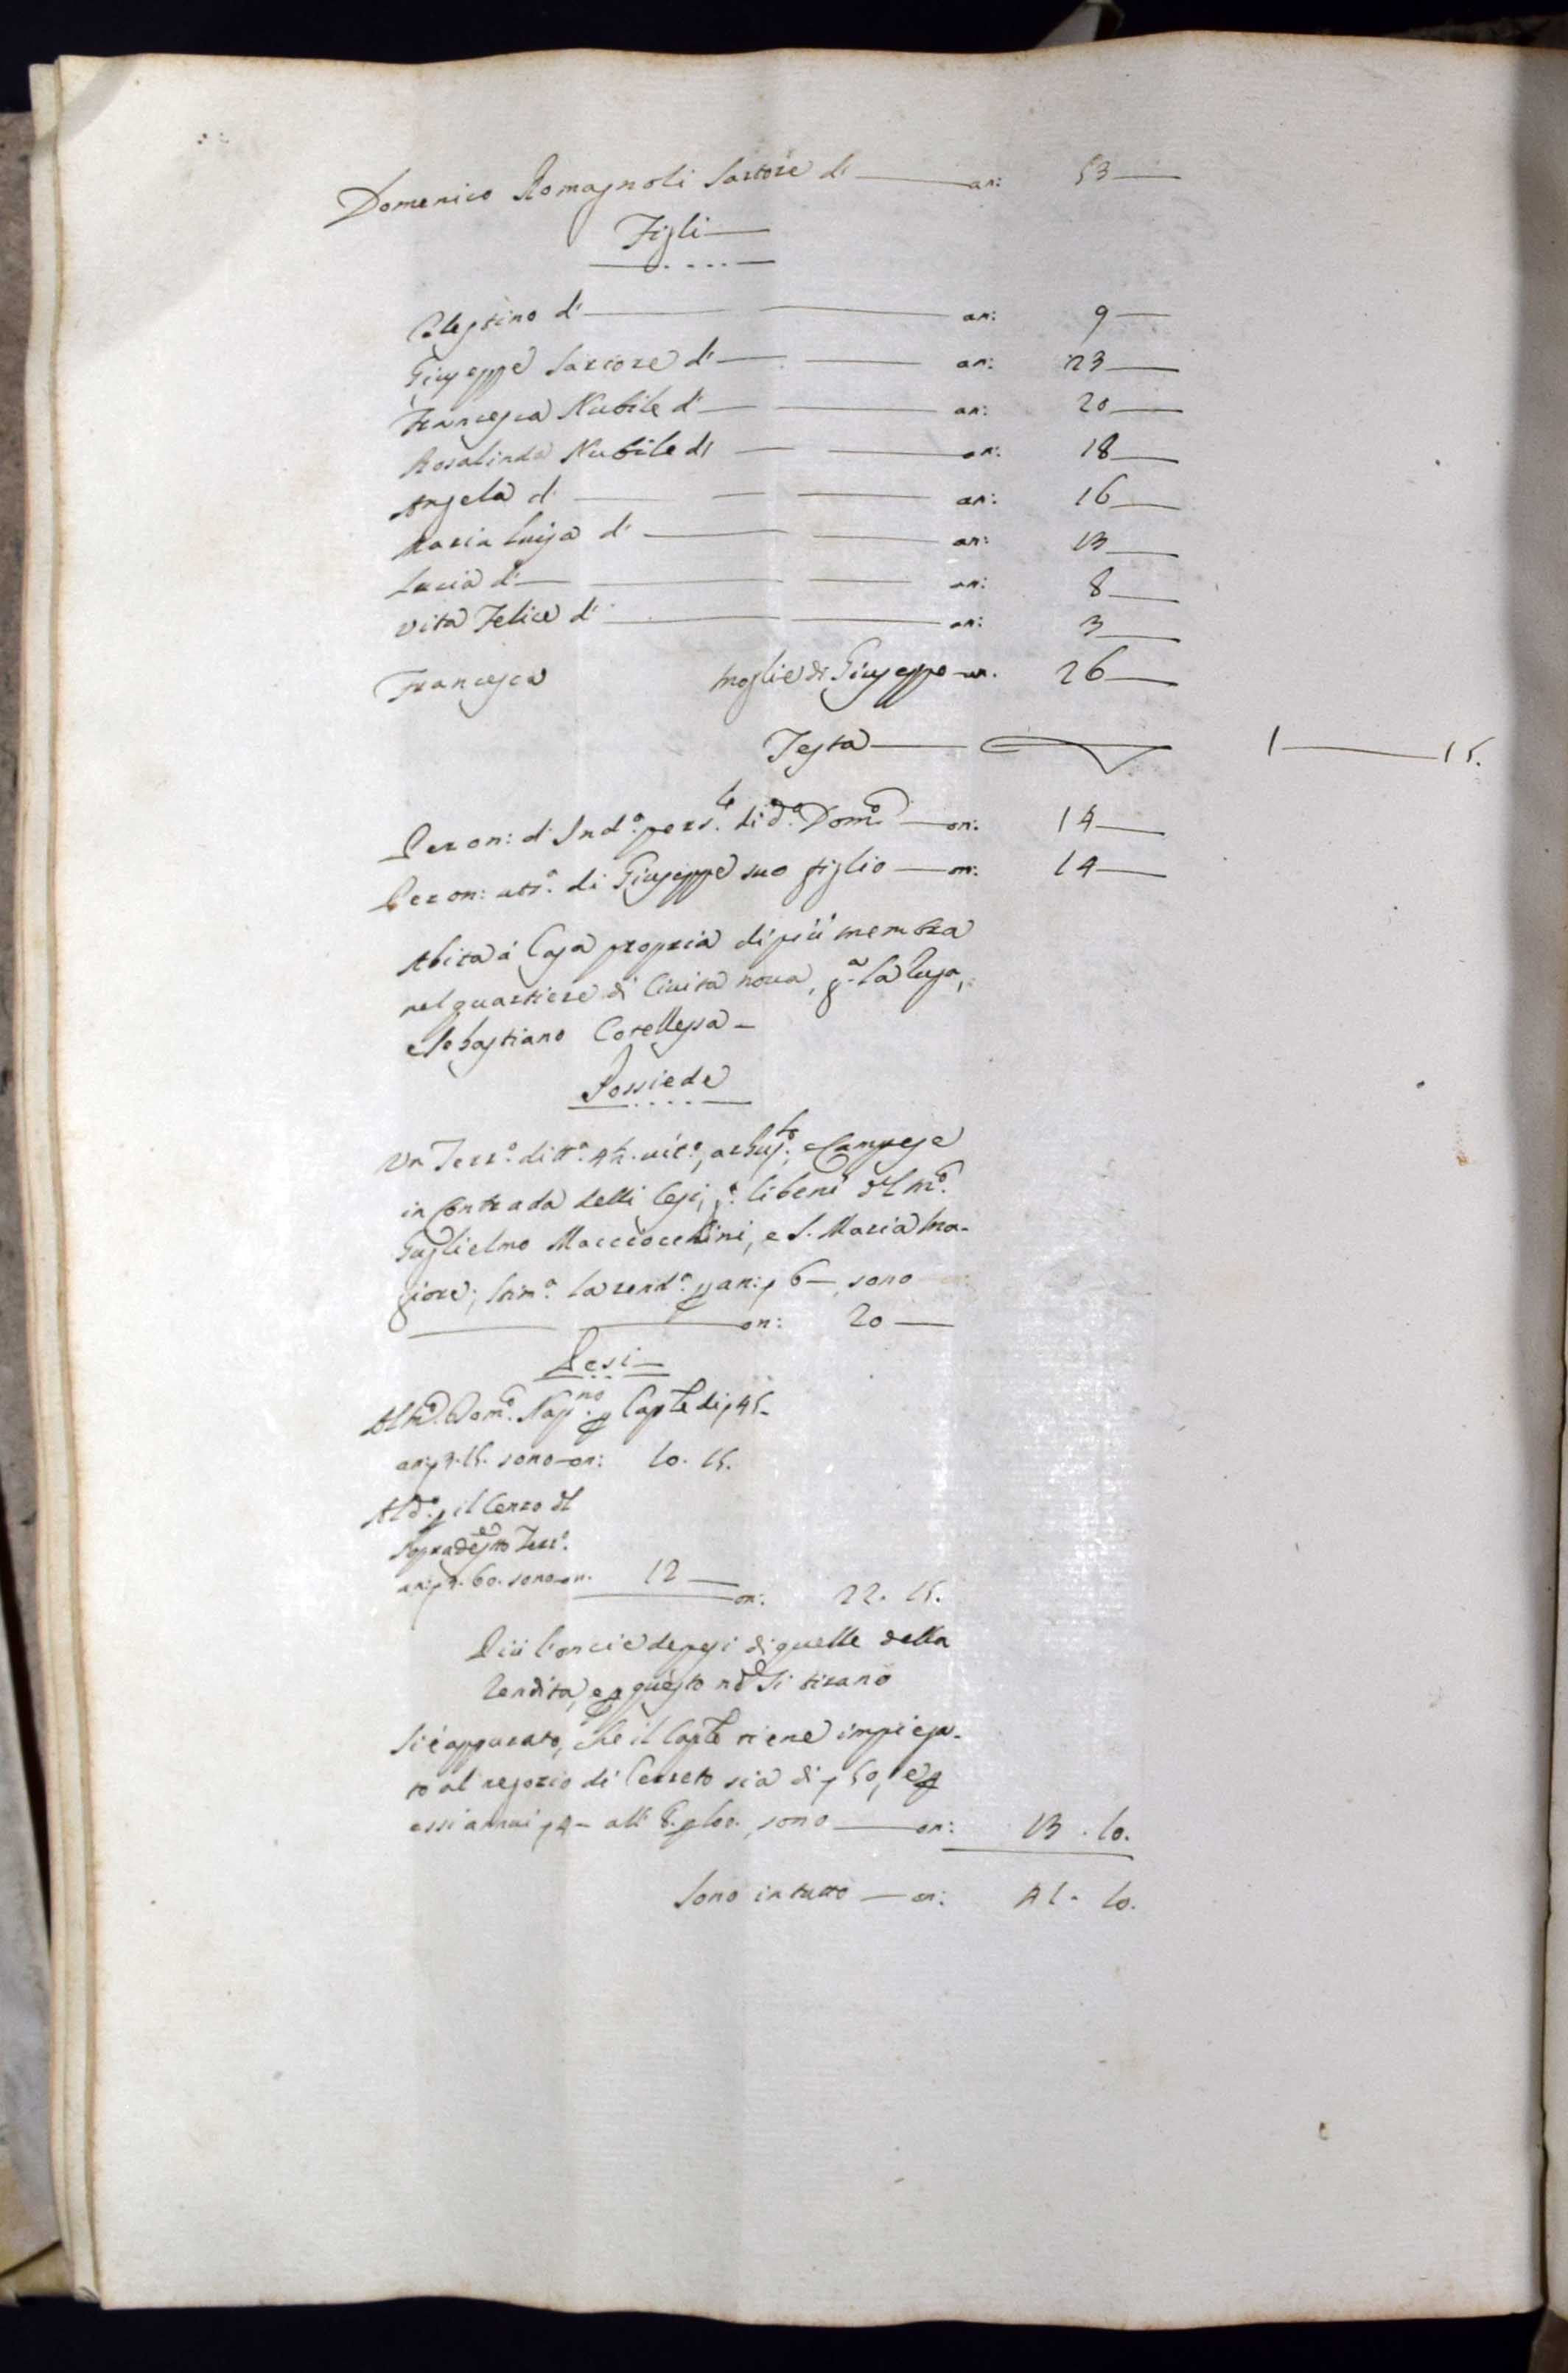 Domenico Romagnoli Sartore di — an: 53 —
Figli —
Celestino di — an: 9 —
Giuseppe Sartore di — an: 23 —
Francesca Nubile di — an: 20 —
Rosalinda Nubile di — an: 18 —
Angela di — an: 16 —
Maria Luisa di — an: 13 —
Lucia di — an: 8 —
Vita Felice di — an: 3 —
Francesca moglie di Giuseppe an. 26 —
Testa — 1 — 15.
Per on: di Ind.a pers.le di d.o Dom.o — on: 14 —
Per on: uts.a di Giuseppe suo figlio — on: 14 —
Abita á Casa propria di più membra
nel quartiere di Civita nova, la
e Sebastiano Cotellessa —
Possiede
Un Terr.o di tt.a 4½ vit.o, arbus.to, e Campese
in Contrada delli Cesi, li beni del M.o
Guglielmo Macciocchini, e S. Maria Ma-
giore; la rend.a p an: 6 — sono
— on: 20 —
Pesi —
Al M.o Dom.o p Cap.le di 45 —
an: 3.15. sono on: 10. 15.
Al d.o p il Censo del
Sopradetto Terr.o
an: 3. 60. sono on. 12 —
on: 22. 15.
Più l'oncie de pesi di quelle della
rendita, e p questo non si tirano
Si è appurato, che il Cap.le tiene impiega-
to al negozio di Cerreto sia di 50, e p
essi annui 4 — all' 8. p 100. sono — on: 13. 10.
Sono in tutto — on: 41. 10.